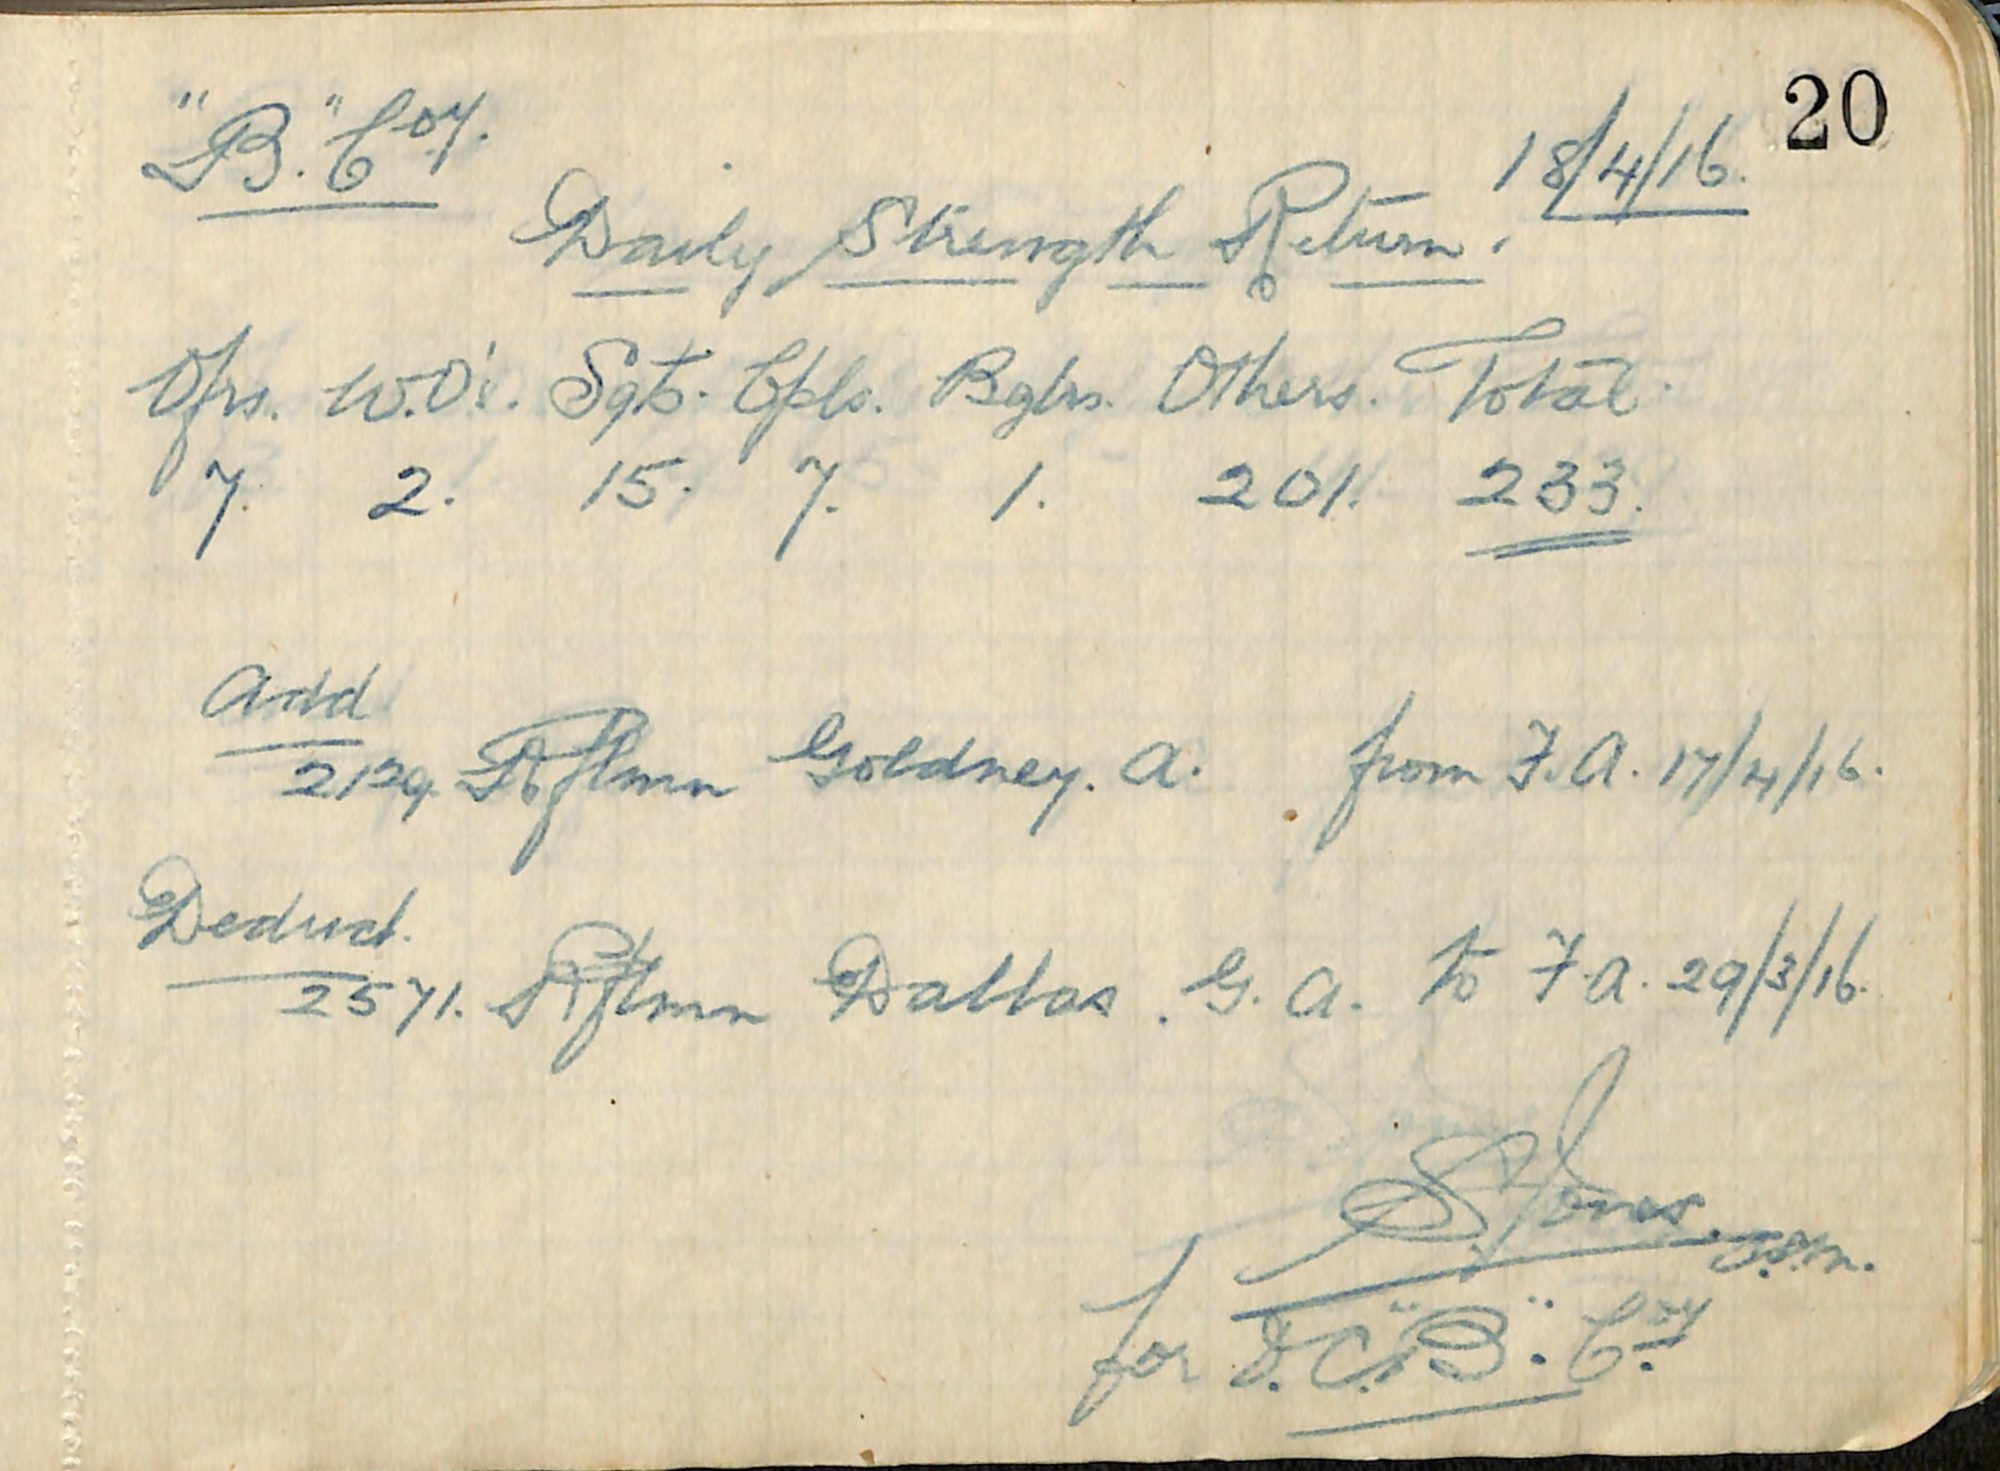 20
"B." Coy.
18/4/16.
Daily Strength Return.
Ofrs. W.O's. Sgts. Cpls. Bglrs. Others. Total.
7. 2. 15. 7. 1. 201. 233.
Add
2129. Rflmn Goldney. A. from F.A. 17/4/16.
Deduct.
2571. Rflmn Dallas. G. A. to F.A. 29/3/16.
S Jones
for O.C. "B". Coy.